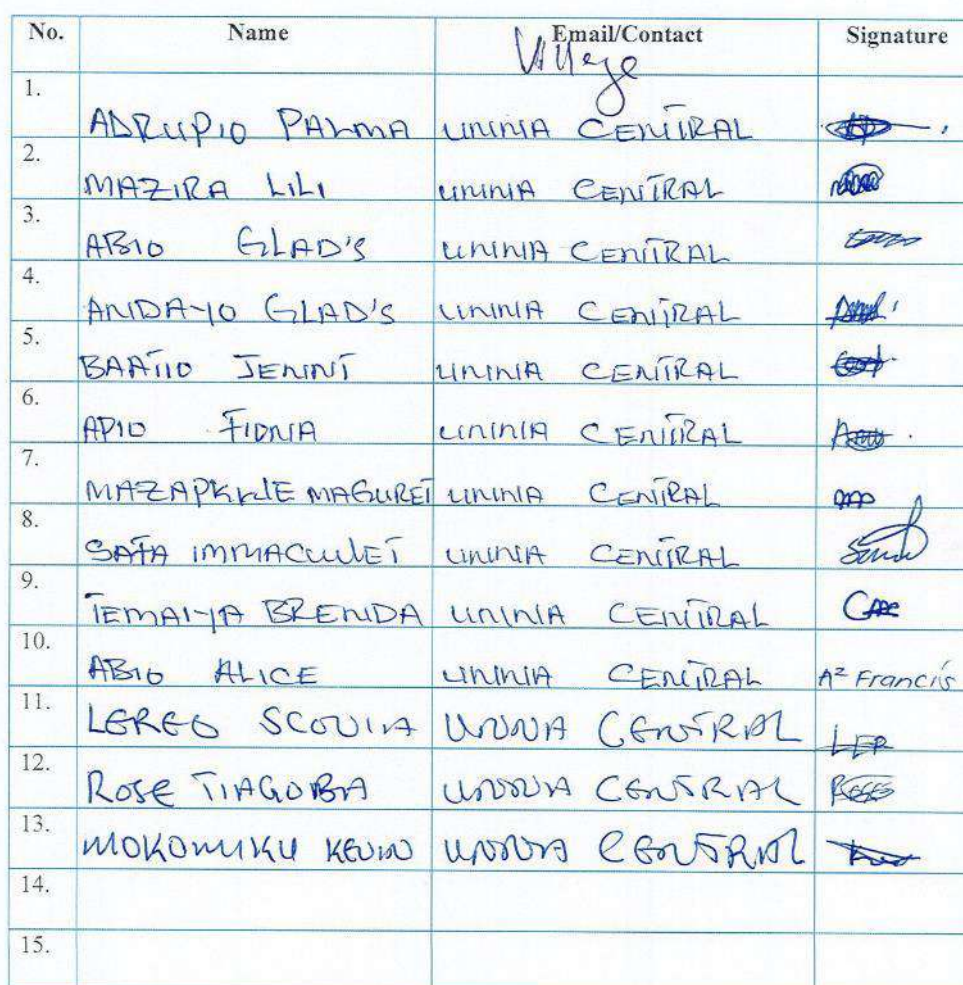 No. Name Email/Contact Signature
Village
1. ADRUPIO PALMA UNNIA CENTRAL
2. MAZIRA LILI UNNIA CENTRAL
3. ABIO GLAD'S UNNIA CENTRAL
4. ANIDAYO GLAD'S UNNIA CENTRAL
5. BAATIO JENNI UNNIA CENTRAL
6. APIO FIDNIA UNNIA CENTRAL
7. MAGURET UNNIA CENTRAL
8. SAFA IMMACULET UNNIA CENTRAL
9. TEMAIYA BRENDA UNNIA CENTRAL
10. ABIO ALICE UNNIA CENTRAL Francis
11. LEREO SCOVIA UNNIA CENTRAL LER
12. ROSE TIAGOBA UNNIA CENTRAL
13. MOKOMIKU KEVIN UNNIA CENTRAL
14.
15.